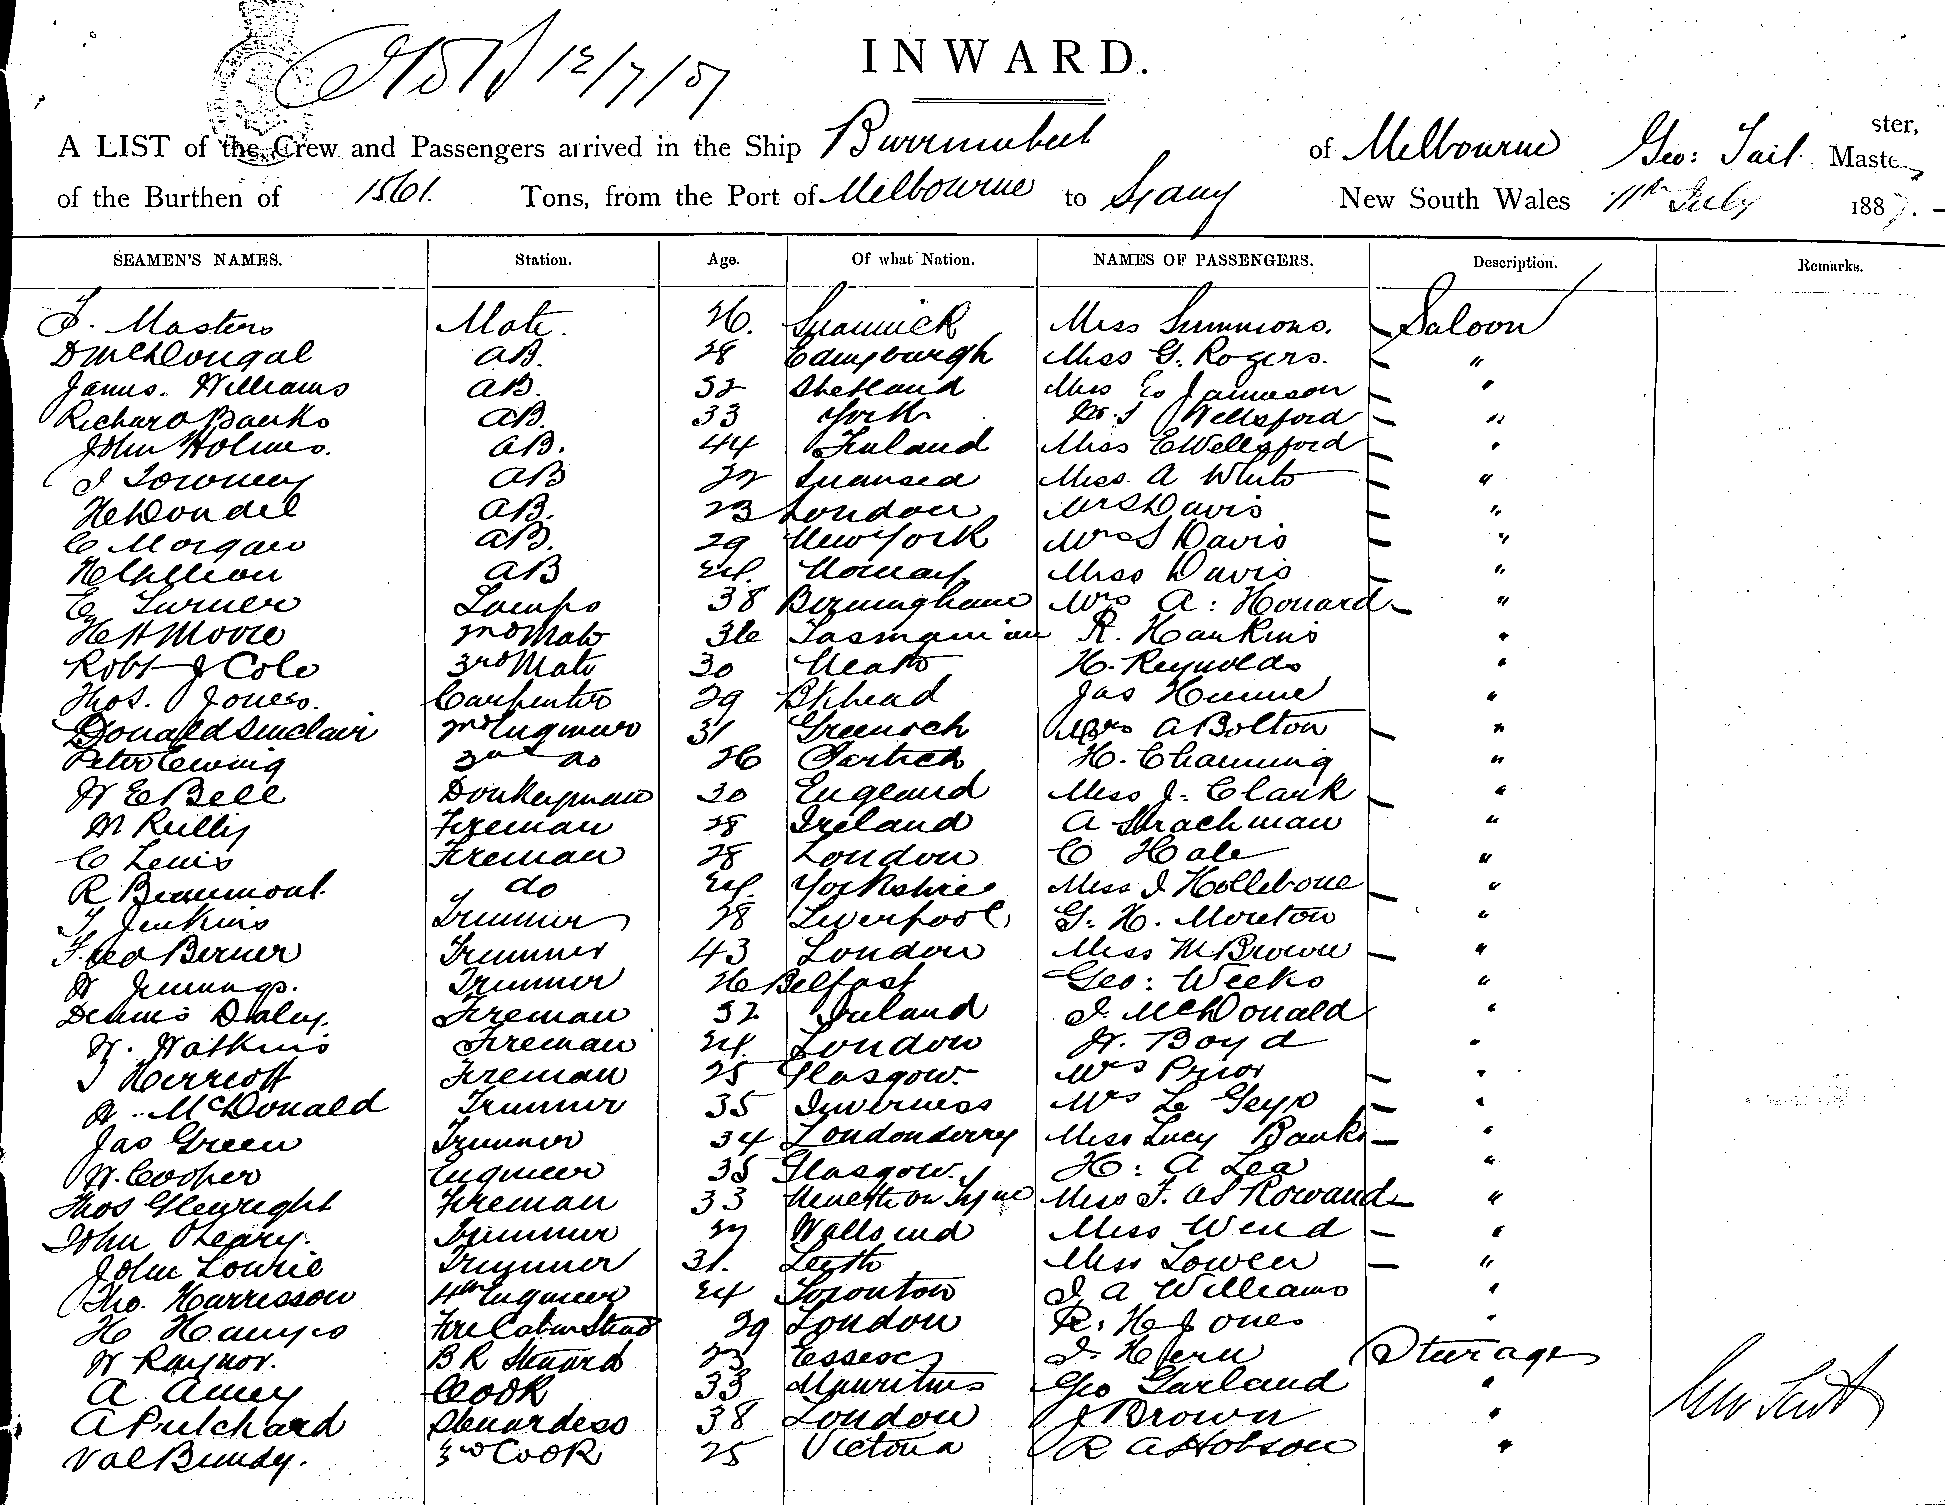 12/7/87
INWARD.
A LIST of the Crew and Passengers arrived in the Ship Burrumbeet of Melbourne Geo: Tait Master,
of the Burthen of 1561. Tons, from the Port of Melbourne to Sydney New South Wales 11th July 1887.
SEAMEN'S NAMES. Station. Age. Of what Nation. NAMES OF PASSENGERS. Description. Remarks.
Masters Mate. 26. Miss Simmons. Saloon
D McDougal AB. 28 Edinyburgh Miss G. Rogers. "
James. Williams AB. 32 Shetland Miss E. Jameson "
Richard Banks AB. 33 York Wellsford "
John Holmes. AB. 44 Finland Miss E Wellsford "
AB 22 Swansea Miss A White "
AB. 23 London Mrs Davis "
C Morgan AB. 29 New York Davis "
AB 24. Norway Miss Davis "
E Turner Lamps 38 Birmingham Mrs A: Howard "
H A Moore 2nd Mate 36 Tasmanian R. Hankins "
Robt J Cole 3rd Mate 30 H. Reynolds "
Thos. Jones. Carpenter 29 B'khead Jas Hume "
Donald Sinclair 2nd Engineer 31 Greenock Mrs A Bolton "
Peter Ewing 3rd do 26 Partick H. Channing "
W E Bell Donkeyman 30 England Miss J. Clark "
M Reilly Fireman 28 Ireland A Strachman "
C Lewis Fireman 28 London C Hale "
R Beaumont. do 24. Yorkshire Miss J Hollebone "
T Jenkins Trimmer 28 Liverpool G. H. Mouton "
Berner Trimmer 43 London Miss M Brown "
W Jennings. Trimmer 26 Belfast Geo: Weeks "
Dennis Daley. Fireman 32 Ireland J. McDonald "
W. Watkins Fireman 24. London W. Boyd "
J Herriott Fireman 25 Glasgow. Mrs Prior "
W. McDonald Trimmer 35 Inverness Mrs Le Geyt "
Jas Green Trimmer 34 Londonderry Miss Lucy Banks "
W. Cooper Engineer 35 Glasgow. H: A Lea "
Thos Glewright Fireman 33 Newcastle on Tyne Miss Rowand "
John OLeary. Trimmer 27 Wallsend Miss Wend "
John Lowrie Trimmer 31. Leith Miss Lowen "
Tho. Harrisson 4th Engineer 24 Toronton J A Williams "
H Fore Cabin Stewd 29 London R. H Jones "
W Raynor. B R Steward 23 Essex J. Hern Steerage
A. Amey Cook 33 Mauritius Geo Garland "
A Pritchard Stewardess 38 London J Brown "
Val Bundy. 3rd Cook 25 Victoria R A Hobson "
Geo Tait